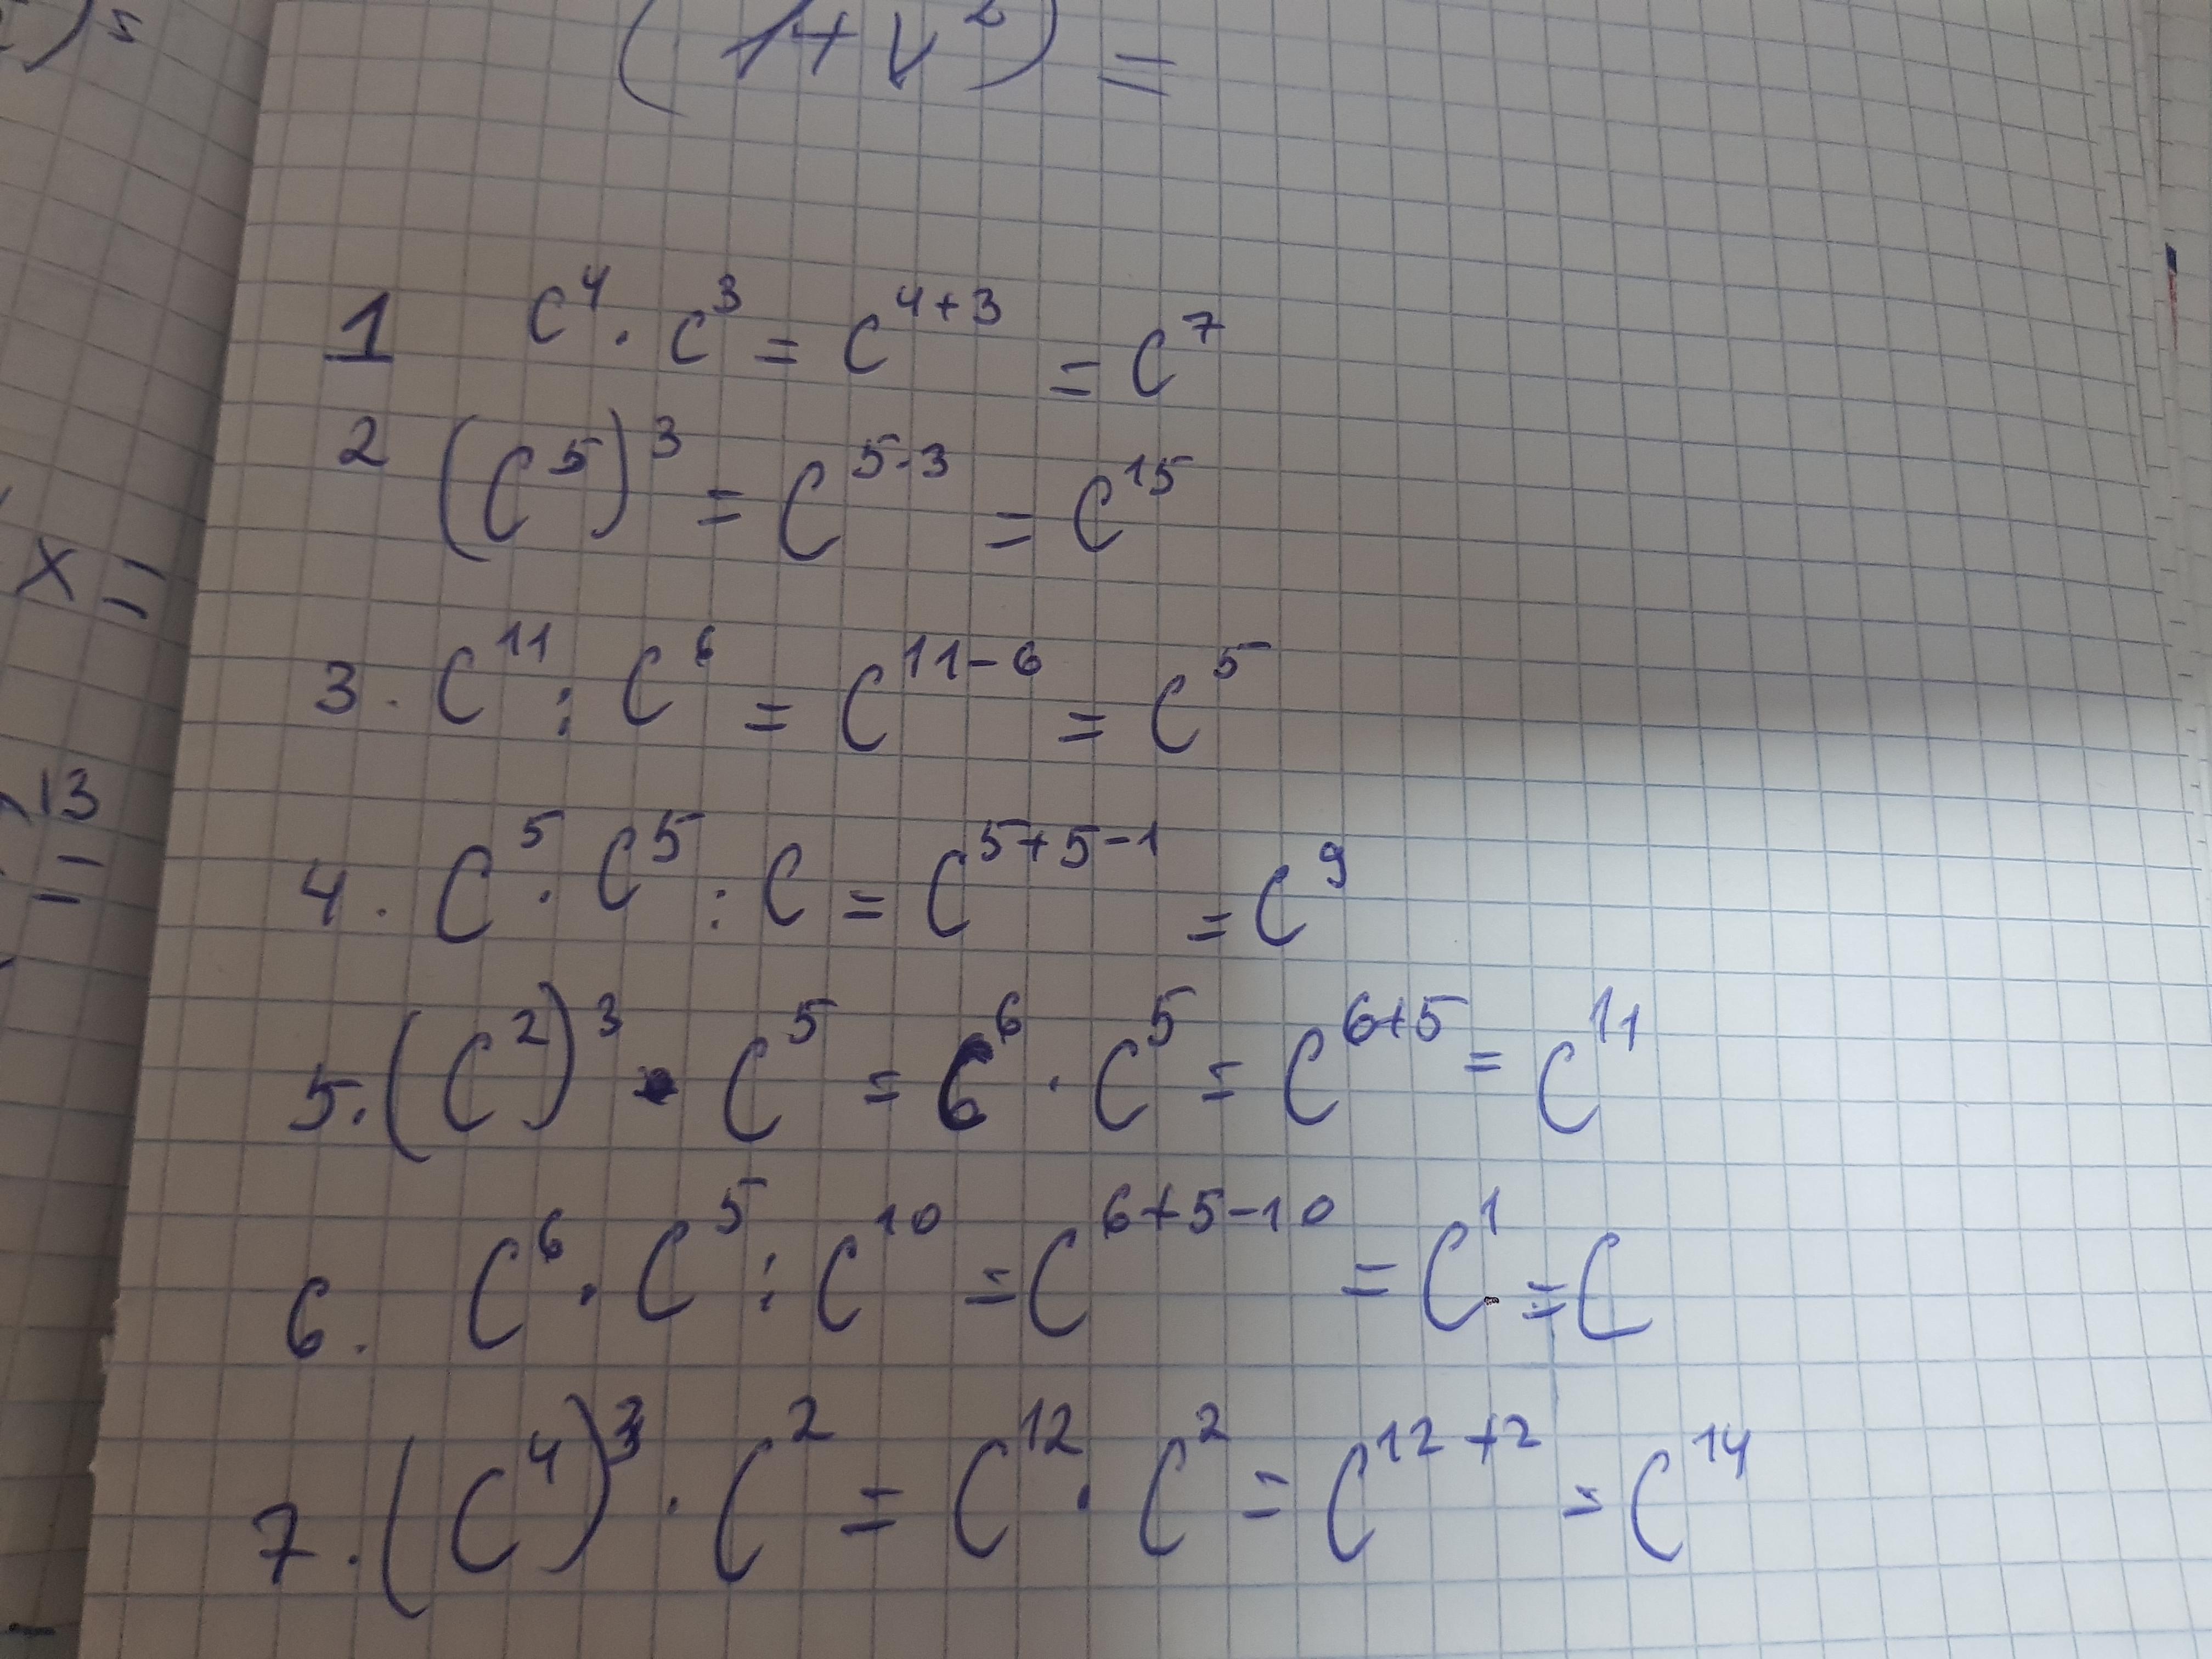 (1+v²) =
1 c⁴ · c³ = c⁴⁺³ = c⁷
2 (c⁵)³ = c⁵˙³ = c¹⁵
3. c¹¹ : c⁶ = c¹¹⁻⁶ = c⁵
4. c⁵ · c⁵ : c = c⁵⁺⁵⁻¹ = c⁹
5. (c²)³ · c⁵ = c⁶ · c⁵ = c⁶⁺⁵ = c¹¹
6. c⁶ · c⁵ : c¹⁰ = c⁶⁺⁵⁻¹⁰ = c¹ = c
7. (c⁴)³ · c² = c¹² · c² = c¹²⁺² = c¹⁴
) =
x =
13
=